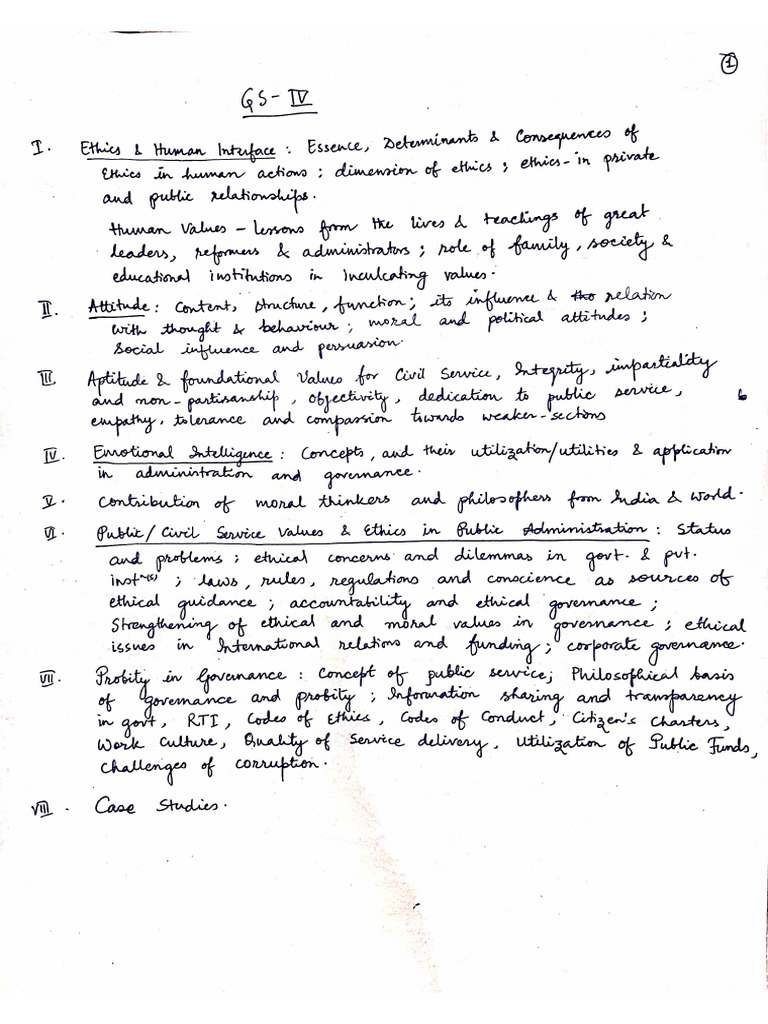 1
GS-IV
I. Ethics & Human Interface : Essence, Determinants & Consequences of
Ethics in human actions ; dimension of ethics ; ethics-in private
and public relationships.
Human Values – lessons from the lives & teachings of great
leaders, reformers & administrators ; role of family, society &
educational institutions in inculcating values.
II. Attitude : Content, structure, function ; its influence & relation
with thought & behaviour ; moral and political attitudes ;
Social influence and persuasion.
III. Aptitude & foundational Values for Civil Service, Integrity, impartiality
and non-partisanship, objectivity, dedication to public service,
empathy, tolerance and compassion towards weaker-sections
IV. Emotional Intelligence : Concepts, and their utilization/utilities & application
in administration and governance.
V. Contribution of moral thinkers and philosophers from India & World.
VI. Public/Civil Service Values & Ethics in Public Administration : Status
and problems ; ethical concerns and dilemmas in govt. & pvt.
instⁿ⁽ˢ⁾ ; laws, rules, regulations and conscience as sources of
ethical guidance ; accountability and ethical governance ;
Strengthening of ethical and moral values in governance ; ethical
issues in International relations and funding ; corporate governance.
VII. Probity in Governance : Concept of public service; Philosophical basis
of governance and probity ; Information sharing and transparency
in govt, RTI, Codes of Ethics, Codes of Conduct, Citizen's Charters,
Work Culture, Quality of Service delivery, Utilization of Public Funds,
Challenges of corruption.
VIII. Case Studies.